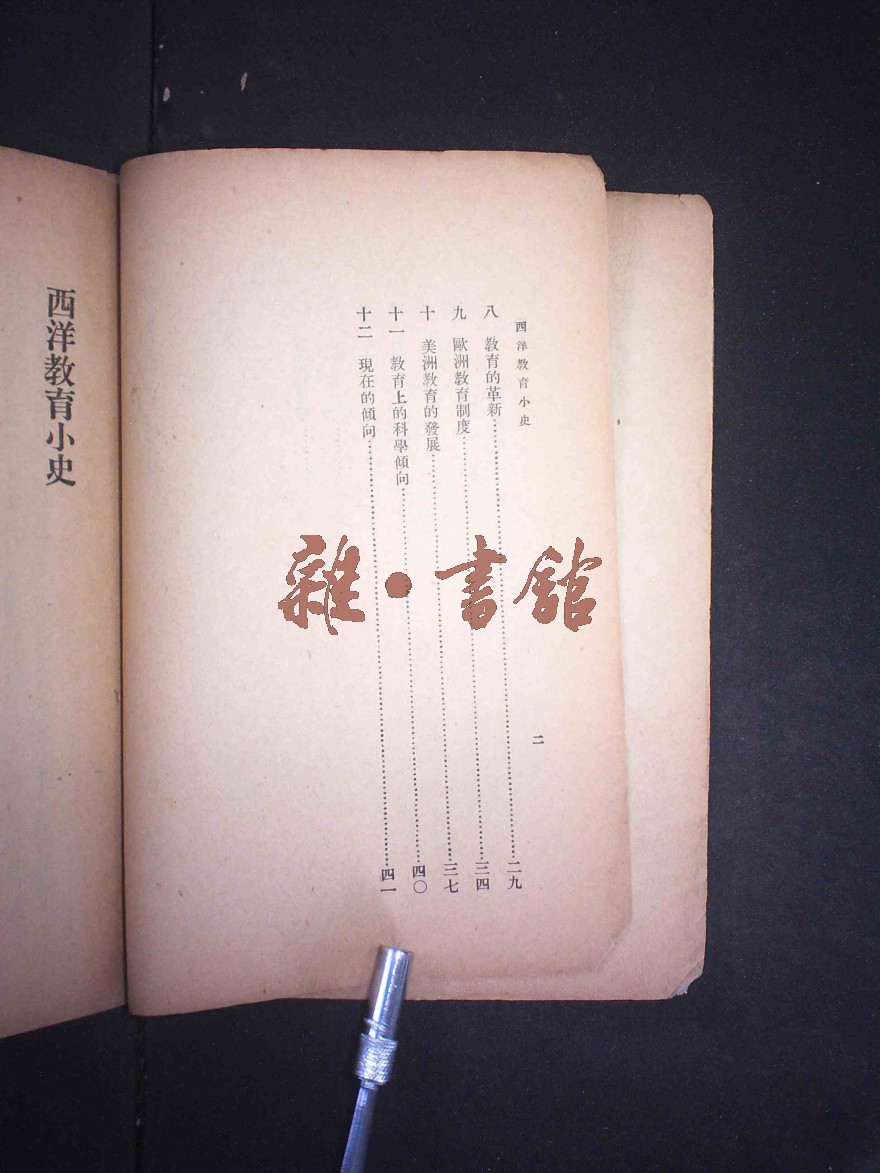 西洋教育小史
八 教育的革新…………二九
九 歐洲教育制度…………三四
十 美洲教育的發展…………三七
十一 教育上的科學傾向…………四〇
十二 現在的傾向…………四一
二
西洋教育小史
雜·書館